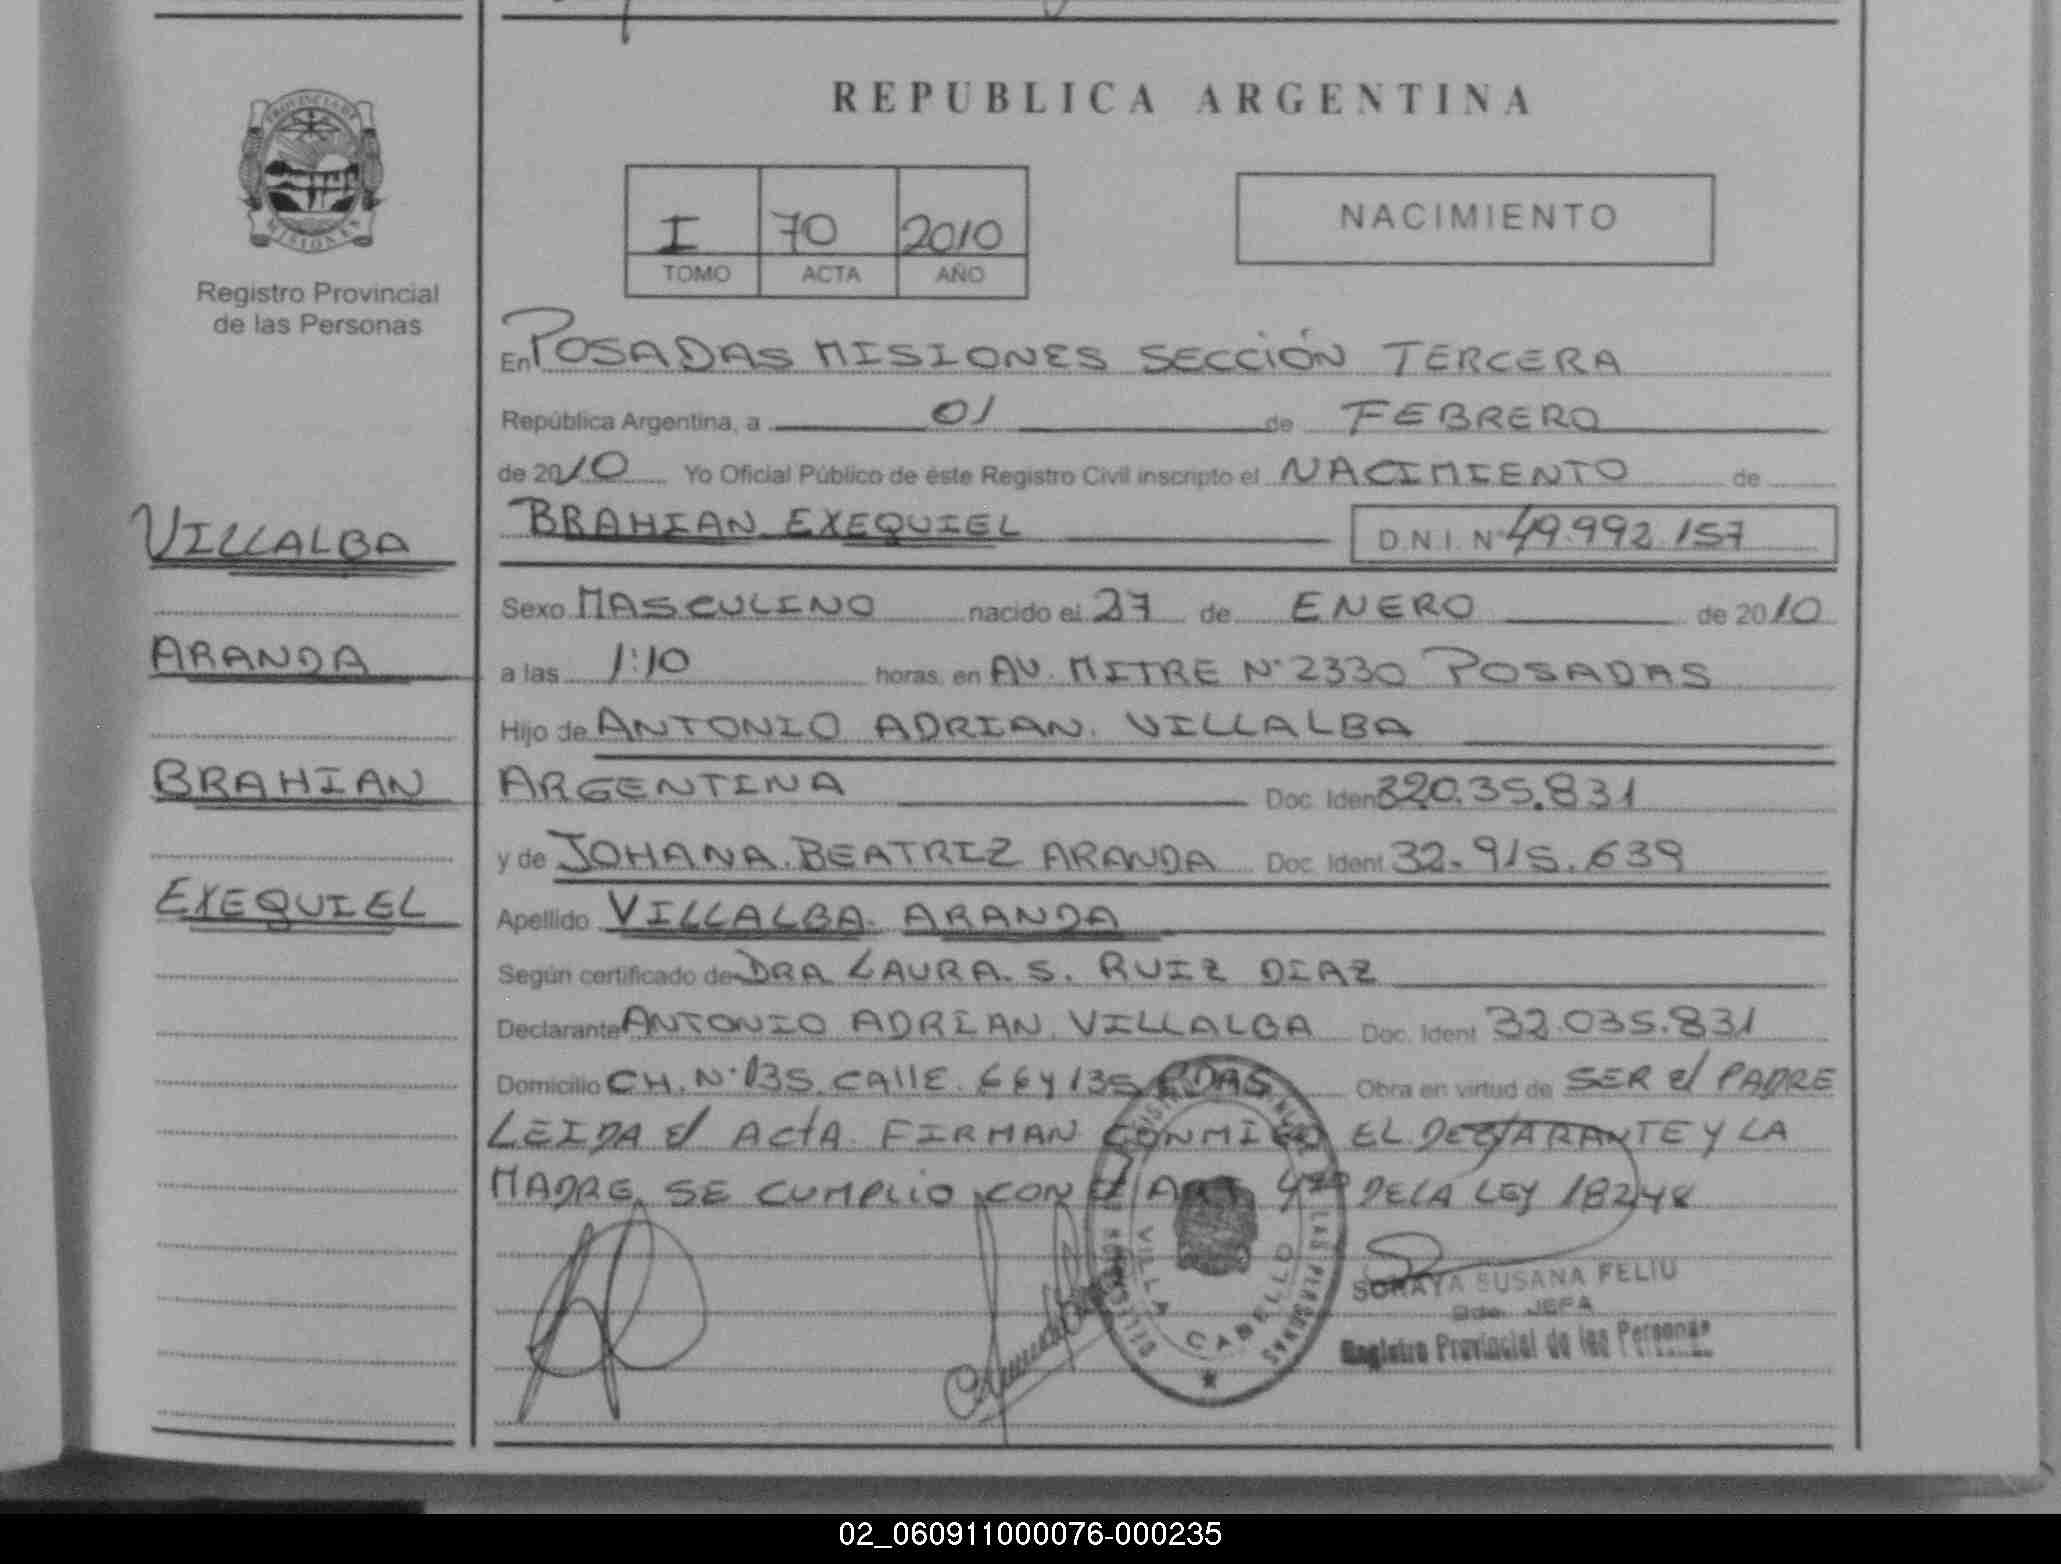 PROVINCIA DE
MISIONES
Registro Provincial
de las Personas
VILLALBA
ARANDA
BRAHIAN
EXEQUIEL
REPUBLICA ARGENTINA
I 70 2010
TOMO ACTA AÑO
NACIMIENTO
En POSADAS MISIONES SECCIÓN TERCERA
República Argentina, a 01 de FEBRERO
de 2010 Yo Oficial Público de éste Registro Civil inscripto el NACIMIENTO de
BRAHIAN EXEQUIEL D.N.I. Nº 49.992.157
Sexo MASCULINO nacido el 27 de ENERO de 2010
a las 1:10 horas, en AV. MITRE Nº 2330 POSADAS
Hijo de ANTONIO ADRIAN. VILLALBA
ARGENTINA Doc. Iden 320.35.831
y de JOHANA. BEATRIZ ARANDA Doc. Ident. 32.915.639
Apellido VILLALBA. ARANDA
Según certificado de DRA LAURA. S. RUIZ DIAZ
Declarante ANTONIO ADRIAN. VILLALBA Doc. Ident 32.035.831
Domicilio CH. Nº 135. CAllE. 66 y 135 PDAS Obra en virtud de SER el PADRE
LEIDA el ActA. FIRMAN CONMIGO EL DEClARANTE Y LA
MADRE. SE CUMPLIO CON el ART 4º DE LA LEY 18248
VILLA CABELLO
LAS PERSONAS
SORAYA SUSANA FELIU
JEFA
Registro Provincial de las Personas
02_060911000076-000235